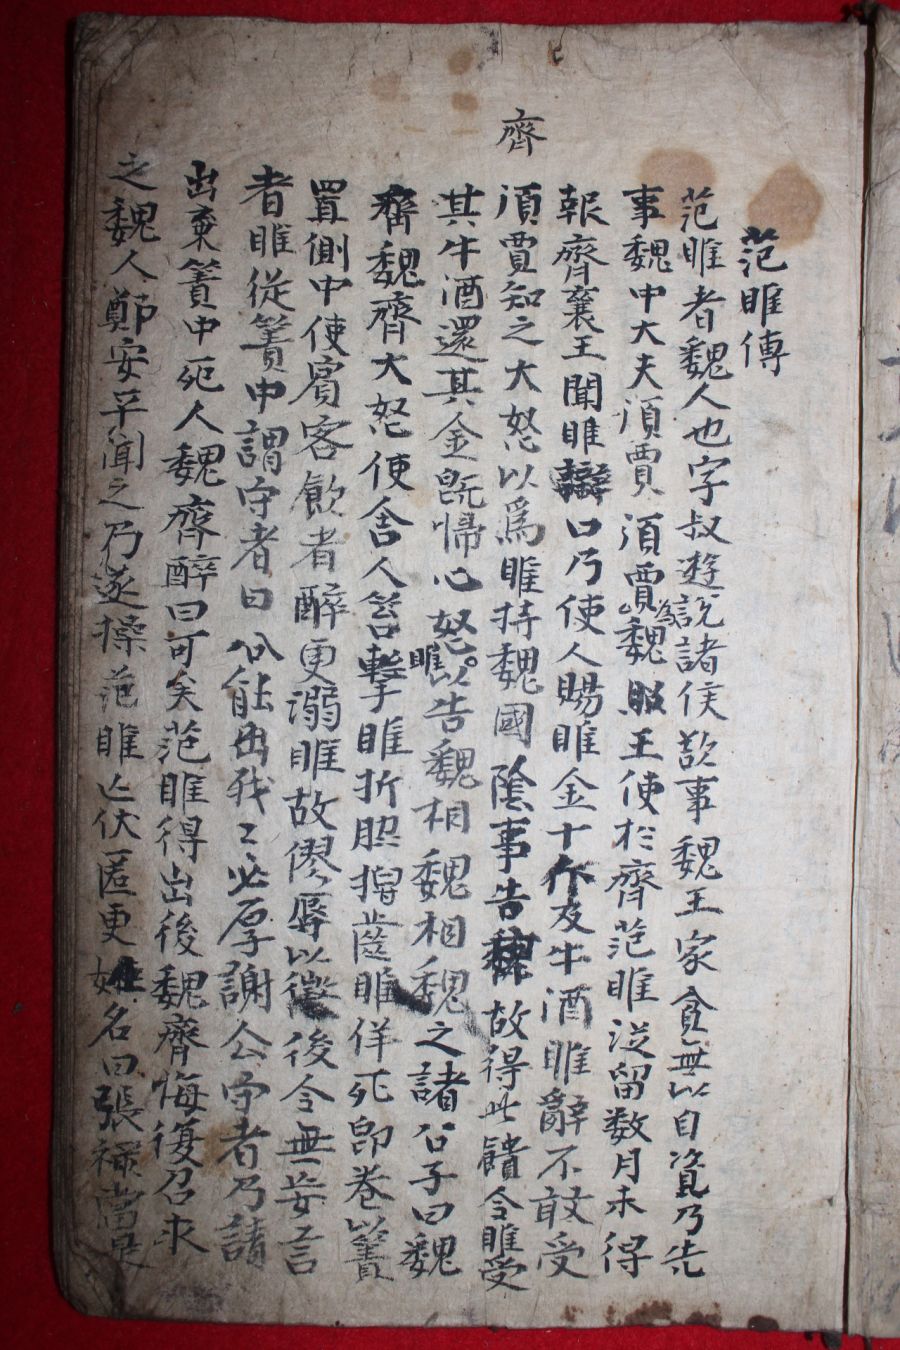 齊
范睢傳
范睢者魏人也字叔遊說諸侯欲事魏王家貧無以自資乃先
事魏中大夫湏賈湏賈為魏昭王使於齊范睢從留数月未得
報齊襄王聞睢辯口乃使人賜睢金十斤及牛酒睢辭不敢受
湏賈知之大怒以爲睢持魏國陰事告齊故得此饋令睢受
其牛酒還其金旣歸心怒睢以告魏相魏相魏之諸公子曰魏
齊魏齊大怒使舍人笞擊睢折脇摺齒睢佯死卽卷以簀
置側中使賓客飮者醉更溺睢故僇辱以徵後令無妄言
者睢從簀中謂守者曰公能出我〻必厚謝公守者乃請
出棄簀中死人魏齊醉曰可矣范睢得出後魏齊悔復召求
之魏人鄭安平聞之乃遂操范睢亡伏匿更姓名曰張祿當是